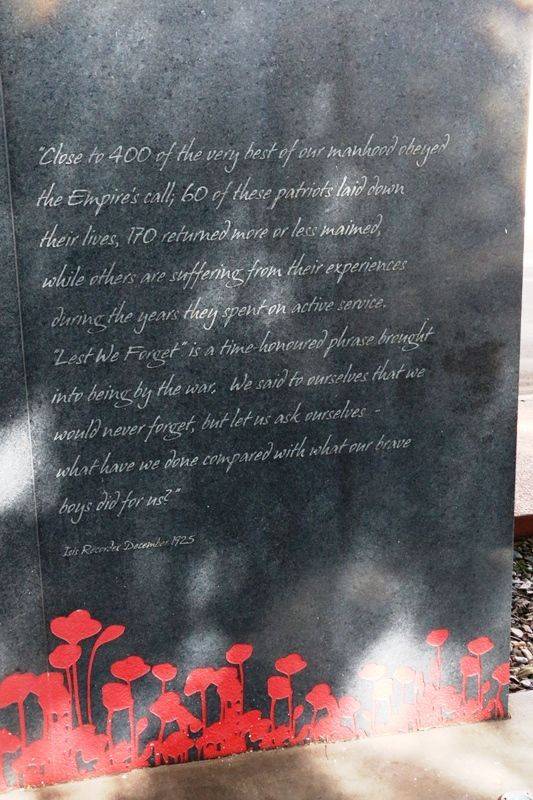 "Close to 400 of the very best of our manhood obeyed
the Empire's call; 60 of these patriots laid down
their lives, 170 returned more or less maimed,
while others are suffering from their experiences
during the years they spent on active service.
"Lest We Forget" is a time-honoured phrase brought
into being by the war. We said to ourselves that we
would never forget, but let us ask ourselves -
what have we done compared with what our brave
boys did for us?"
Isis Recorder December 1925